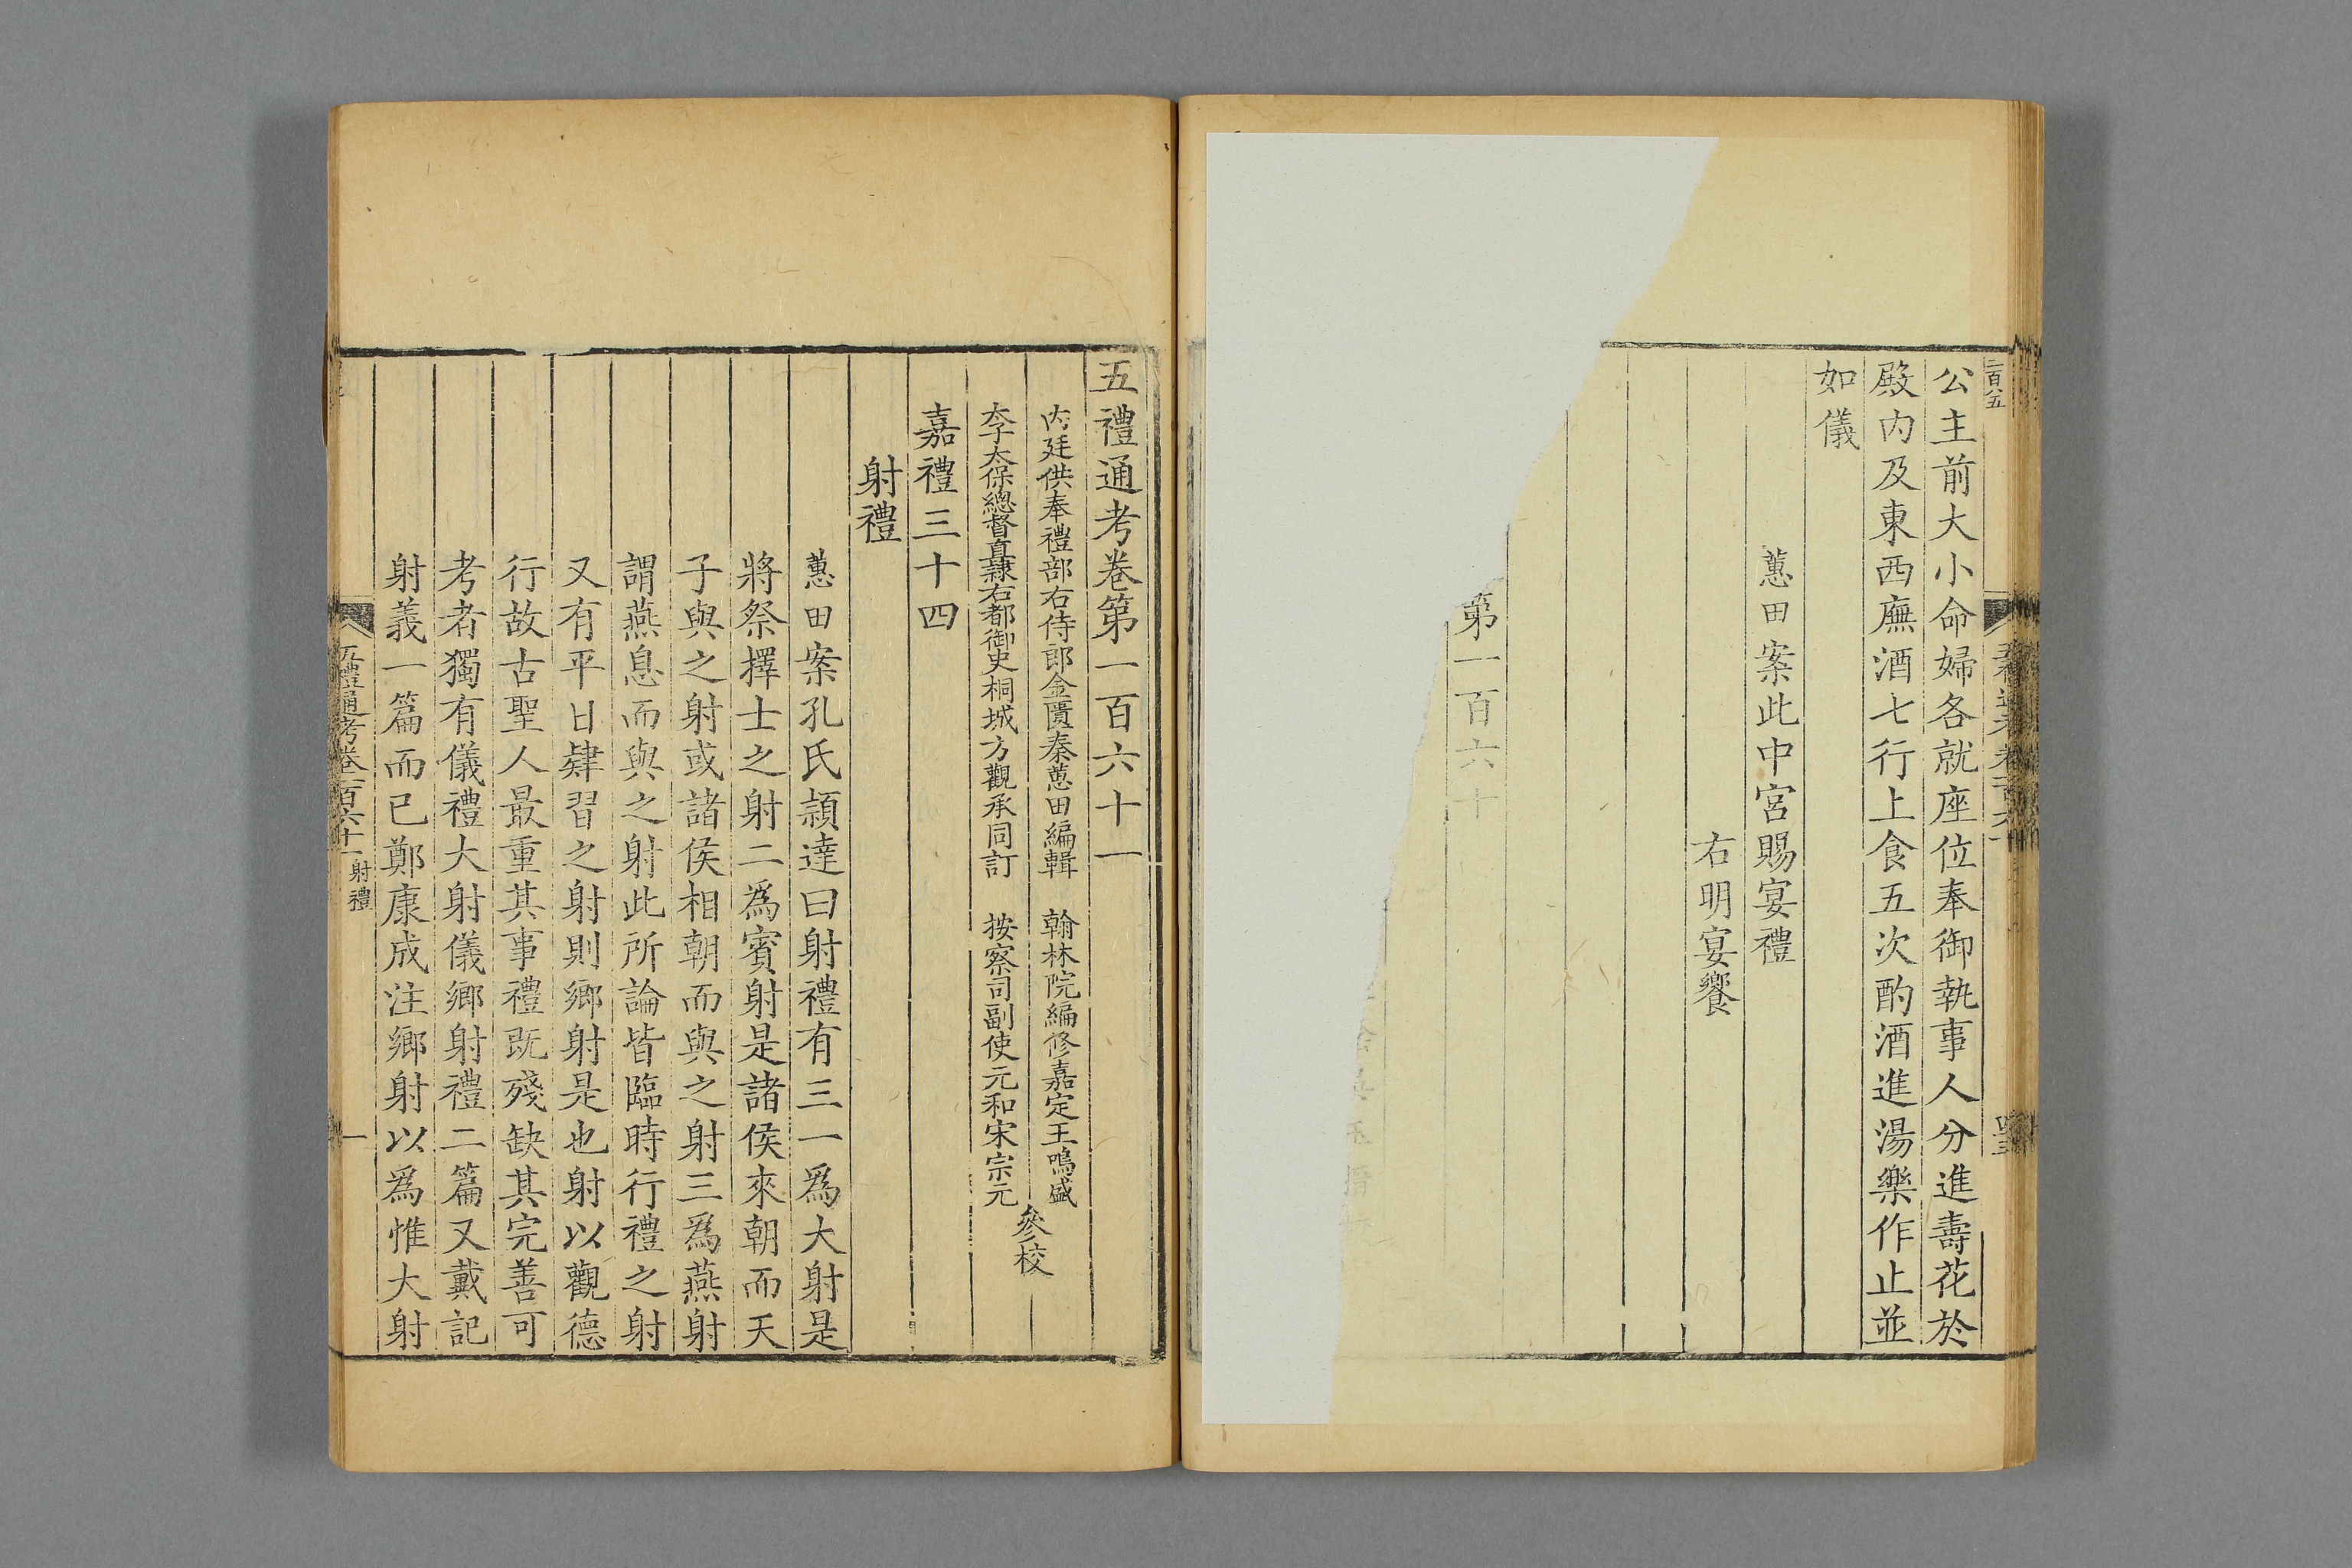 二百八五
公主前大小命婦各就座位奉御執事人分進壽花於
殿内及東西廡酒七行上食五次酌酒進湯樂作止並
如儀
蕙田案此中宮賜宴禮
右明宴饗
第一百六十
五禮通考卷第一百六十一
内廷供奉禮部右侍郎金匱秦蕙田編輯 翰林院編修嘉定王鳴盛
太子太保總督直隸右都御史桐城方觀承同訂 按察司副使元和宋宗元
參校
嘉禮三十四
射禮
蕙田案孔氏頴達曰射禮有三一爲大射是
將祭擇士之射二爲賓射是諸侯來朝而天
子與之射或諸侯相朝而與之射三爲燕射
謂燕息而與之射此所論皆臨時行禮之射
又有平日肄習之射則鄉射是也射以觀德
行故古聖人最重其事禮既殘缺其完善可
考者獨有儀禮大射儀鄉射禮二篇又戴記
射義一篇而已鄭康成注鄉射以爲惟大射
五禮通考卷一百六十一 射禮 一